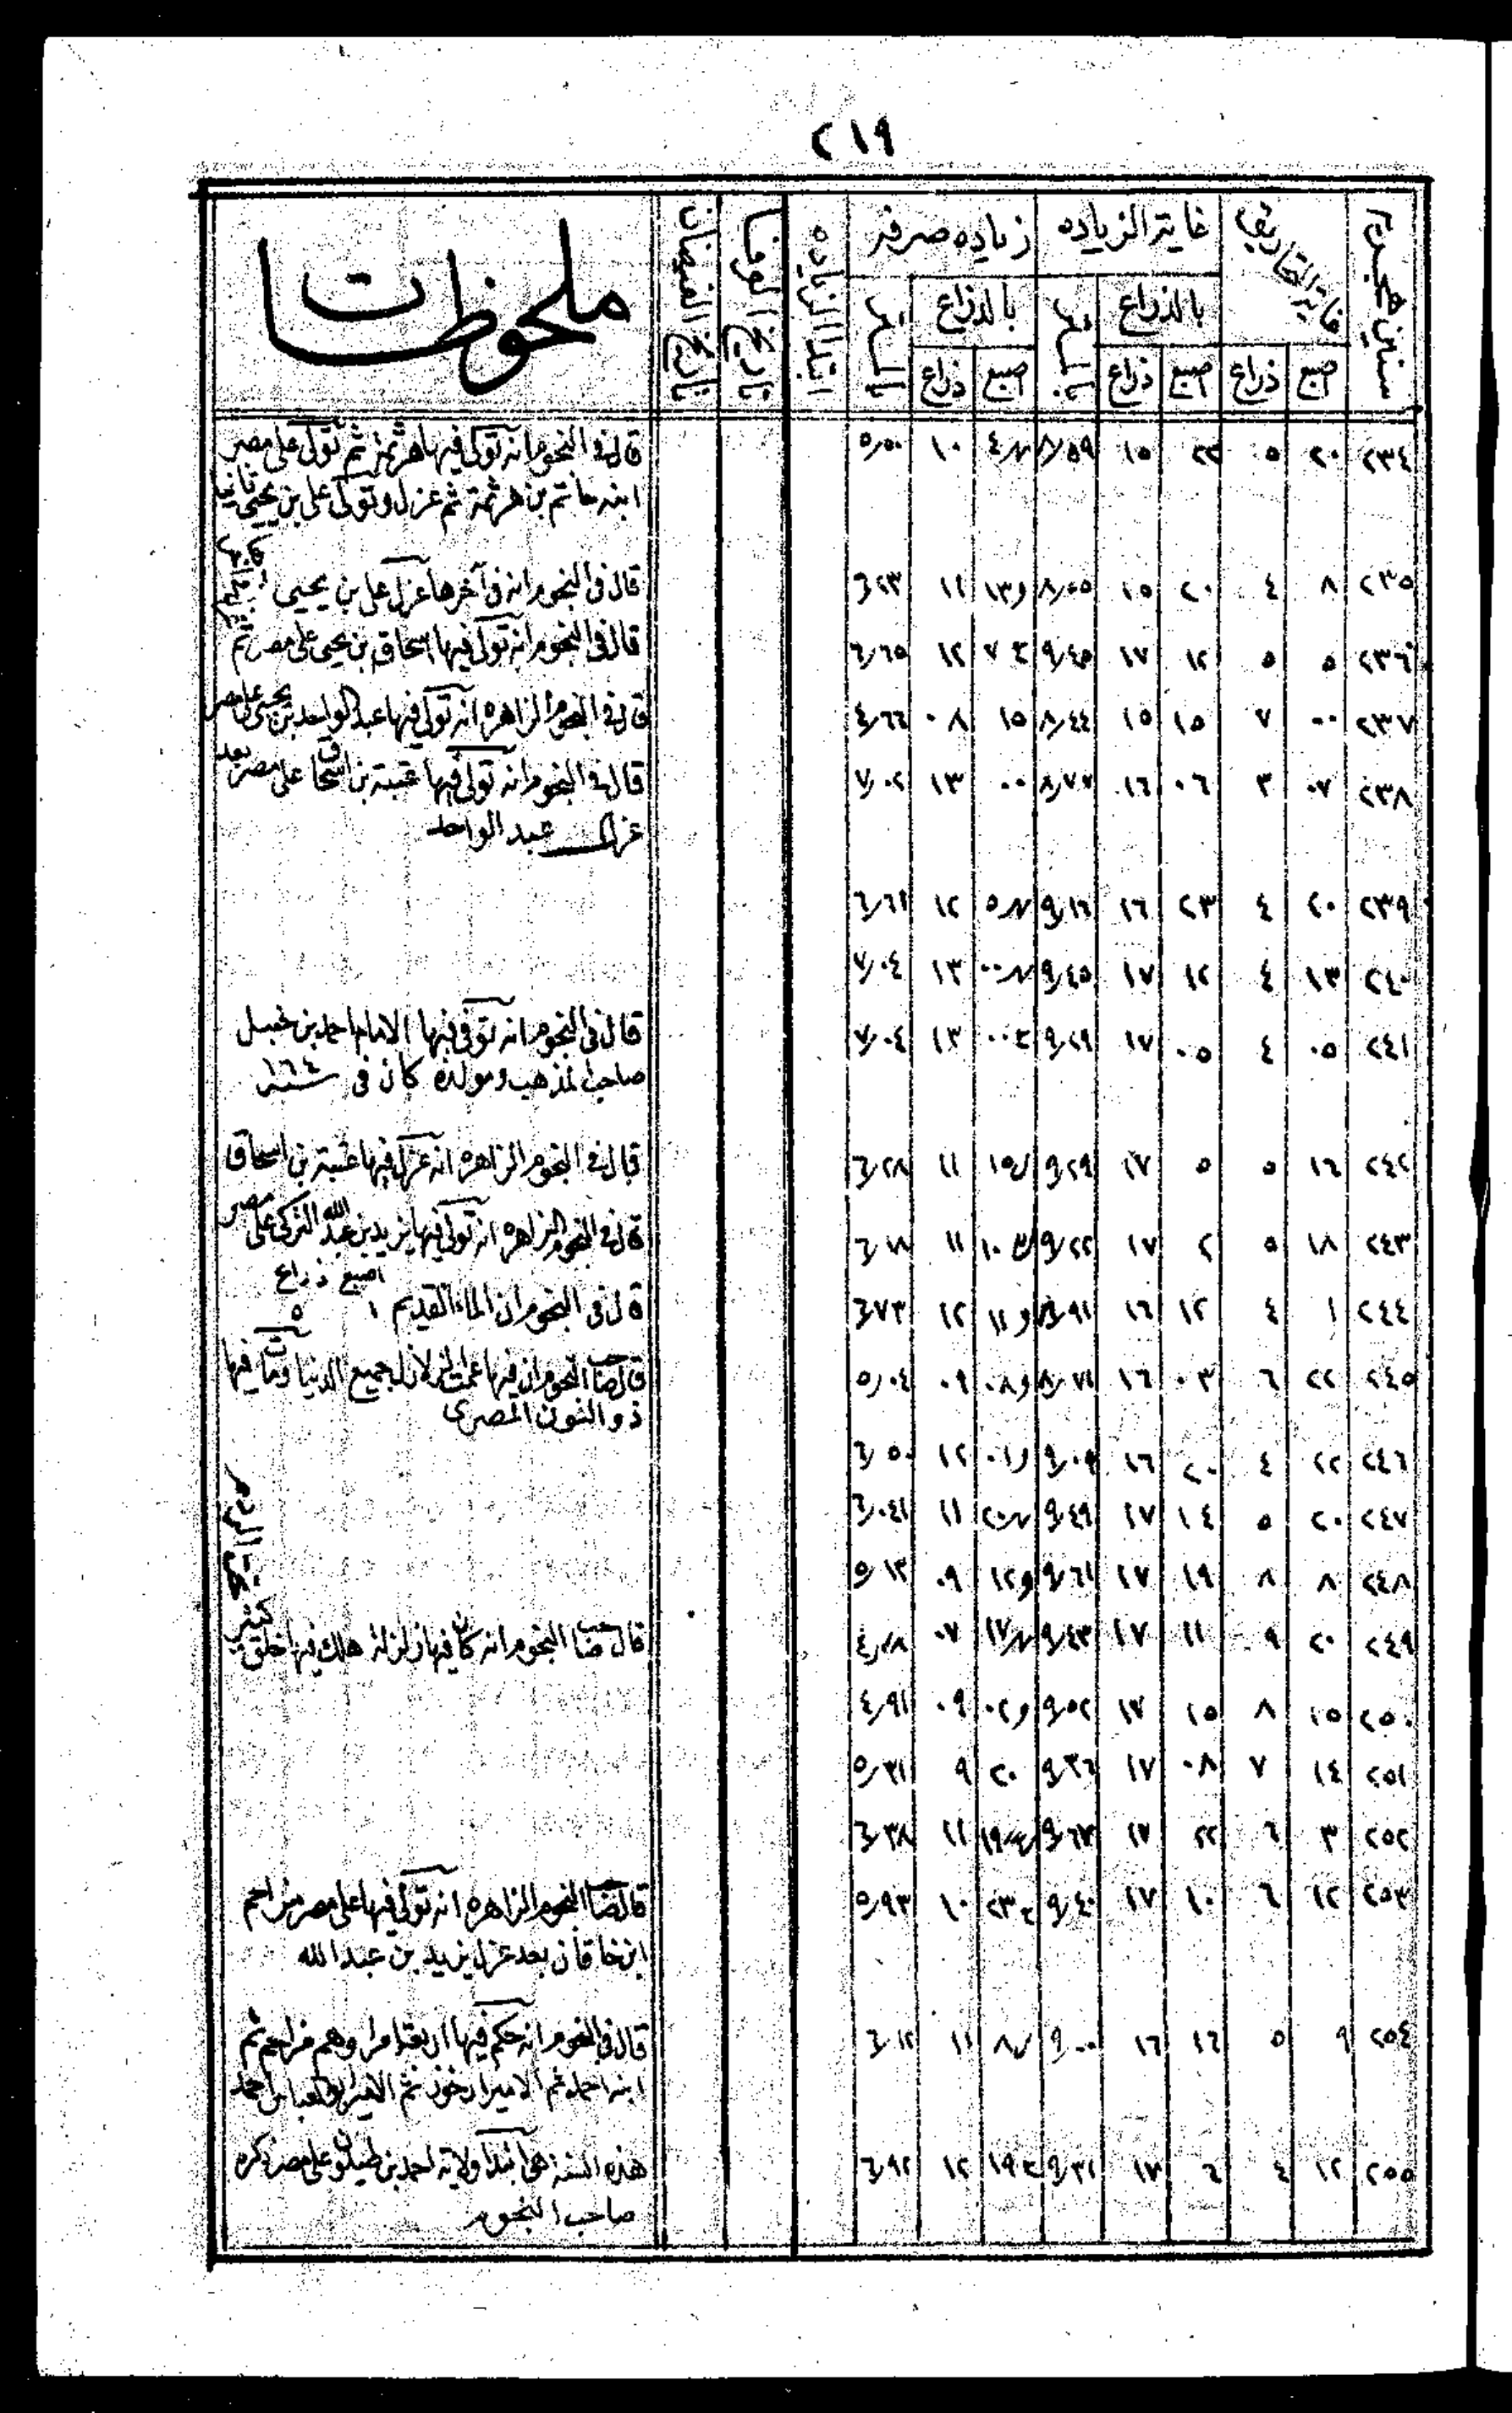 ٢١٩
سنين هجريه | غاية التحاريق | غاية الزياده | زياده صرفه | ابتدا الزياده | تاريخ الوفا | تاريخ الفيضان | ملحوظات
بالذراع | بالمتر | بالذراع | بالمتر
اصبع | ذراع | اصبع | ذراع | اصبع | ذراع
٢٣٤ | ٢٠ | ٥ | ٢٢ | ١٥ | ٨٫٥٩ | ٤ | ١٠ | ٥٫٥٠ | قال فى النجوم انه تولى فيها هرثمة ثم تولى على مصر
ابنه حاتم بن هرثمة ثم عزل وتولى على بن يحيى ثانيا
٢٣٥ | ٨ | ٤ | ٢٠ | ١٥ | ٨٫٥٥ | ١٣ | ١١ | ٦٫٢٣ | قال فى النجوم انه فى آخرها عزل على بن يحيى
٢٣٦ | ٥ | ٥ | ١٢ | ١٧ | ٩٫٤٥ | ٧ | ١٢ | ٦٫٦٥ | قال فى النجوم انه تولى فيها اسحاق بن يحيى على مصر ثم
٢٣٧ | ٠٠ | ٧ | ١٥ | ١٥ | ٨٫٤٤ | ١٥ | ٠٨ | ٤٫٦٦ | قال فى النجوم الزاهره انه تولى فيها عبد الواحد بن يحيى على مصر
٢٣٨ | ٠٧ | ٣ | ٠٦ | ١٦ | ٨٫٧٧ | ٠٠ | ١٣ | ٧٫٠٢ | قال فى النجوم انه تولى فيها عتبة بن اسحاق على مصر بعد
عزل عبد الواحد
٢٣٩ | ٢٠ | ٤ | ٢٣ | ١٦ | ٩٫١٦ | ٥ | ١٢ | ٦٫٦١
٢٤٠ | ١٣ | ٤ | ١٢ | ١٧ | ٩٫٤٥ | ٠٠ | ١٣ | ٧٫٠٤
٢٤١ | ٠٥ | ٤ | ٠٥ | ١٧ | ٩٫٢٩ | ٠٠ | ١٣ | ٧٫٠٤ | قال فى النجوم انه توفى فيها الامام احمد بن حنبل
صاحب المذهب ومولده كان فى سنة ١٦٤
٢٤٢ | ١٦ | ٥ | ٥ | ١٧ | ٩٫٢٩ | ١٥ | ١١ | ٦٫٢٨ | قال فى النجوم الزاهره انه عزل فيها عتبة بن اسحاق
٢٤٣ | ١٨ | ٥ | ٢ | ١٧ | ٩٫٢٢ | ١٠ | ١١ | ٦٫١٨ | قال فى النجوم الزاهره انه تولى فيها يزيد بن عبد الله التركى على مصر
اصبع ذراع
٢٤٤ | ١ | ٤ | ١٢ | ١٦ | ٨٫٩١ | ١١ | ١٢ | ٦٫٧٣ | قال فى النجوم ان الماء القديم ١ ٥
٢٤٥ | ٢٢ | ٦ | ٠٣ | ١٦ | ٨٫٧١ | ٠٨ | ٠٩ | ٥٫٠٤ | قال صاحب النجوم ان فيها عمت الزلازل جميع الدنيا ومات فيها
ذو النون المصرى
٢٤٦ | ٢٢ | ٤ | ٢٠ | ١٦ | ٩٫٠٩ | ٠١ | ١٢ | ٦٫٥٠
٢٤٧ | ٢٠ | ٥ | ١٤ | ١٧ | ٩٫٤٩ | ٢٠ | ١١ | ٦٫٠٤١
٢٤٨ | ٨ | ٨ | ١٩ | ١٧ | ٩٫٦١ | ١٢ | ٠٩ | ٥٫١٣
٢٤٩ | ٢٠ | ٩ | ١١ | ١٧ | ٩٫٤٣ | ١٧ | ٠٧ | ٤٫٢٨ | قال صاحب النجوم انه كان فيها زلزلة هلك فيها خلق كثير تحت الردم
٢٥٠ | ١٥ | ٨ | ١٥ | ١٧ | ٩٫٥٢ | ٠٢ | ٠٩ | ٤٫٩١
٢٥١ | ١٤ | ٧ | ٠٨ | ١٧ | ٩٫٣٦ | ٢٠ | ٩ | ٥٫٣١
٢٥٢ | ٣ | ٦ | ٢٢ | ١٧ | ٩٫٦٧ | ١٩ | ١١ | ٦٫٣٨
٢٥٣ | ١٢ | ٦ | ١٠ | ١٧ | ٩٫٤٠ | ٢٣ | ١٠ | ٥٫٩٣ | قال صاحب النجوم الزاهره انه تولى فيها على مصر مزاحم
ابن خاقان بعد عزل يزيد بن عبد الله
٢٥٤ | ٩ | ٥ | ١٦ | ١٦ | ٩٫٠٠ | ٨ | ١١ | ٦٫١٢ | قال فى النجوم انه حكم فيها اربعة امرا وهم مزاحم ثم
ابنه احمد ثم الامير ارخوز ثم الامير ابو العباس احمد
٢٥٥ | ١٢ | ٤ | ٦ | ١٧ | ٩٫٣١ | ١٩ | ١٢ | ٦٫٩٢ | هذه السنه هى ابتدا ولاية احمد بن طيلون على مصر ذكره
صاحب النجوم